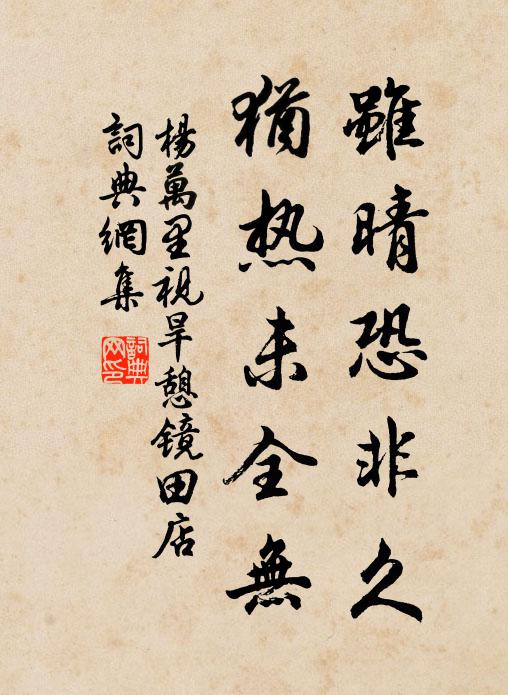 雖晴恐非久
猶热未全無
楊萬里視旱憩鏡田店
詞典網集
詞典
网印